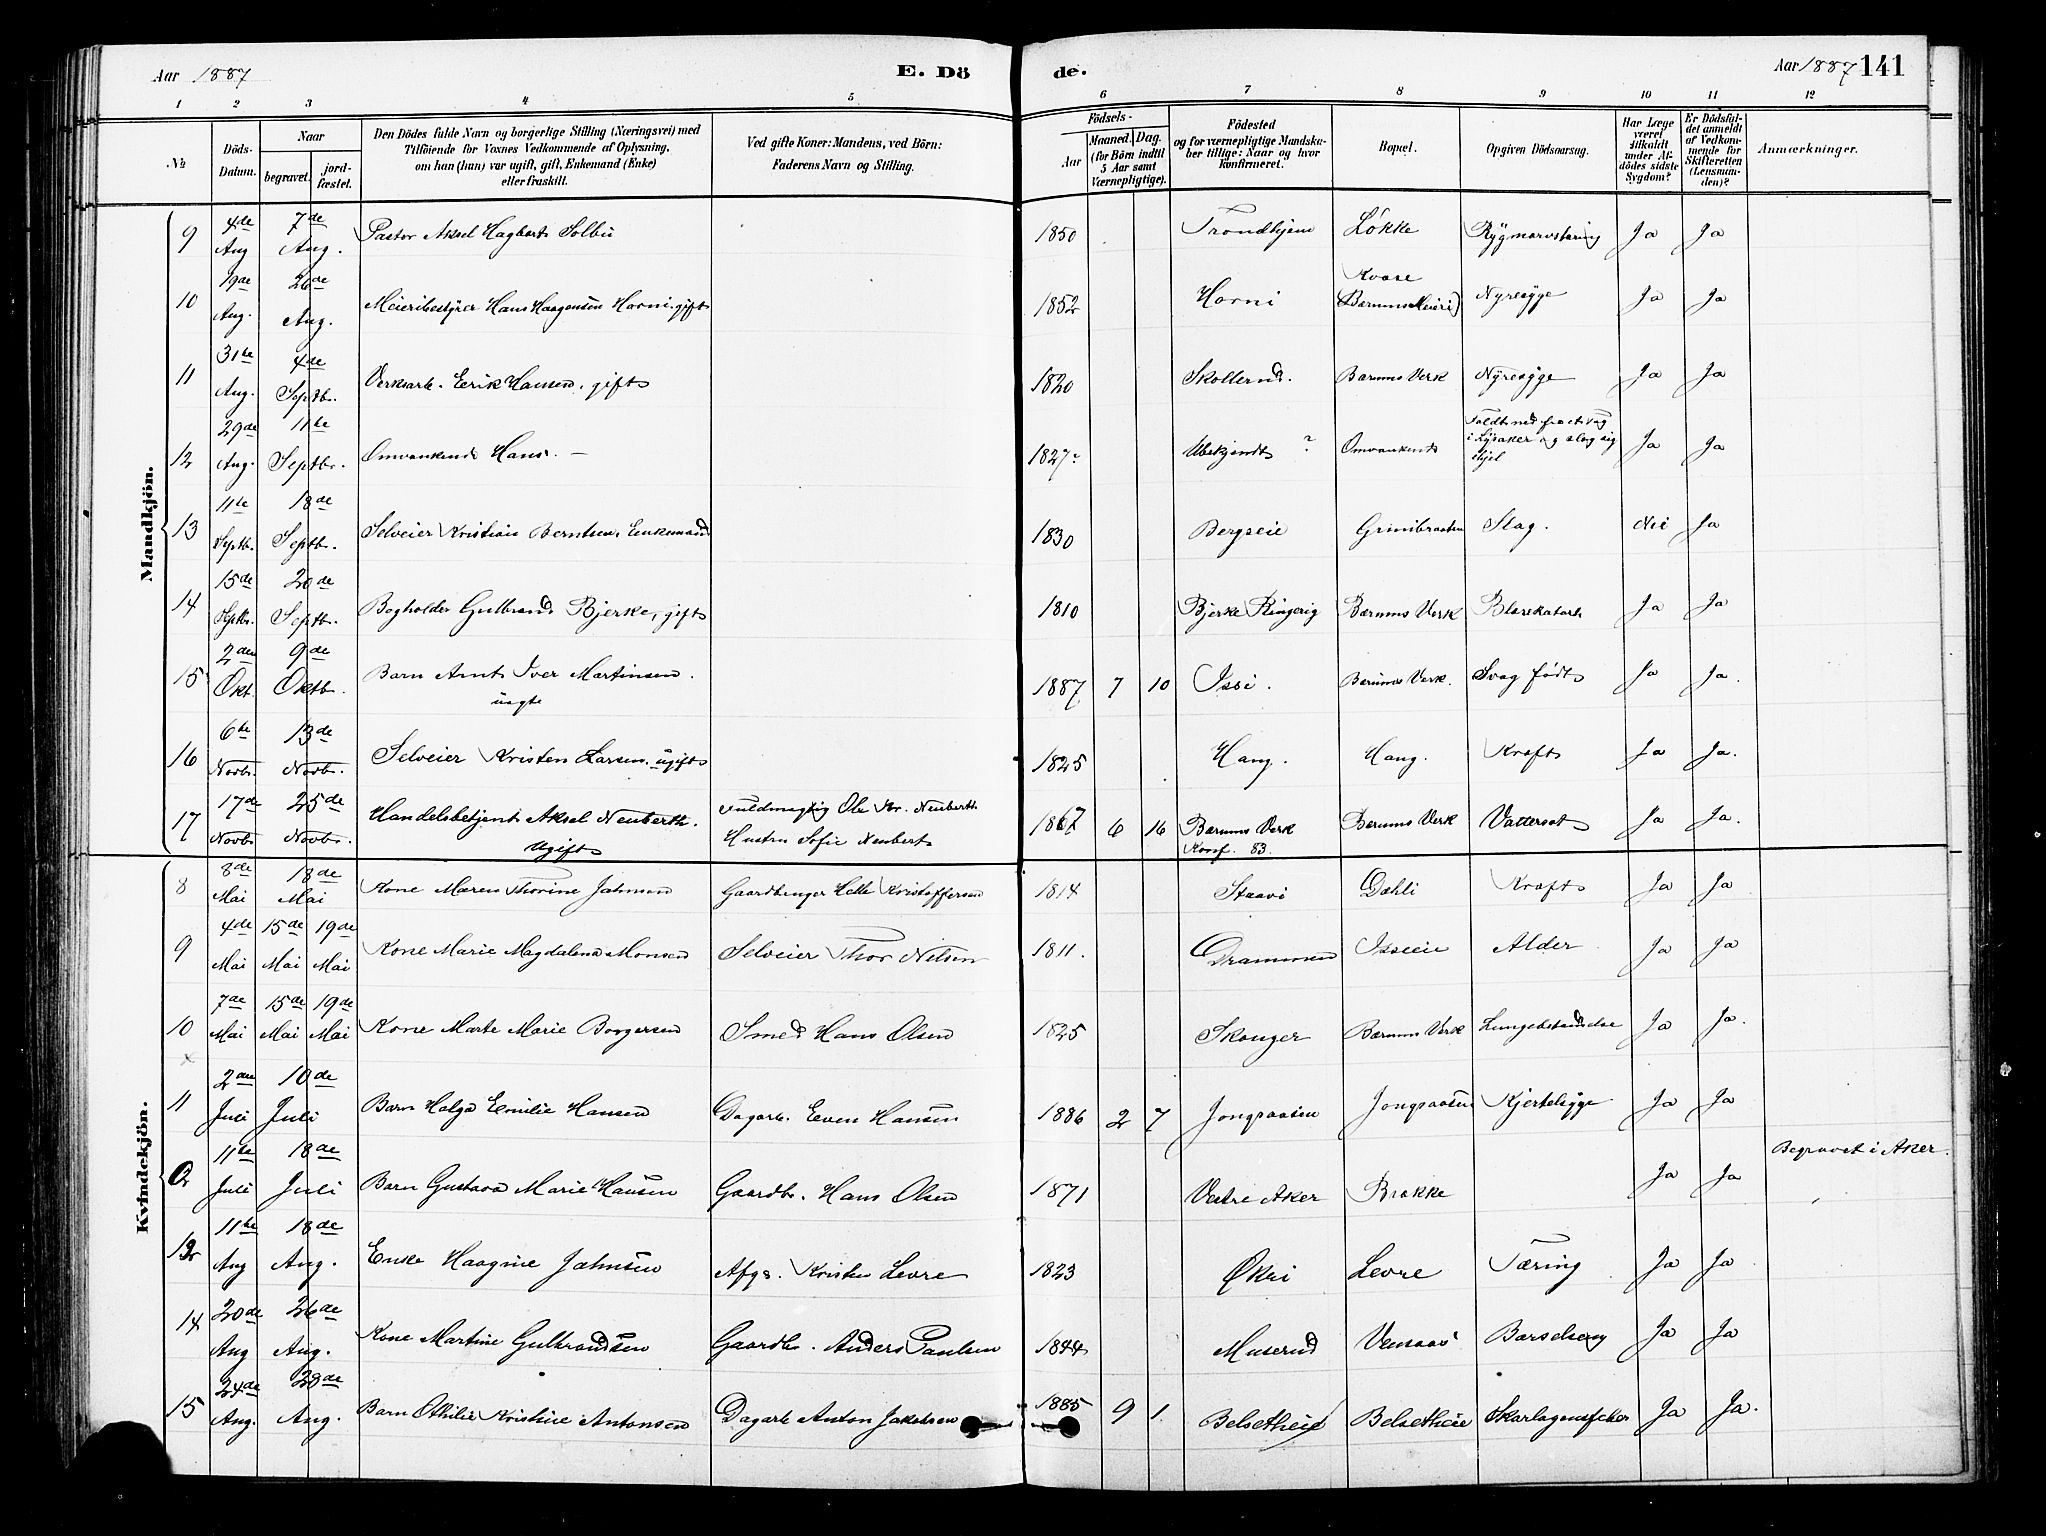 Aar 1887
E. Dö
de.
Aar 1887 141
1 2 3 4 5 6 7 8 9 10 11 12
№
Döds-Datum.
Naar
begravet.
jord-fæstet.
Den Dödes fulde Navn og borgerlige Stilling (Næringsvei) med
Tilföiende for Voxnes Vedkommende af Oplysning,
om han (hun) var ugift, gift, Enkemand (Enke)
eller fraskilt.
Ved gifte Koner: Mandens, ved Börn:
Faderens Navn og Stilling.
Födsels-
Aar
Maaned. Dag.
(for Börn indtil
5 Aar samt
Værnepligtige).
Födested
og for værnepligtige Mandska-
ber tillige: Naar og hvor
konfirmeret.
Bopæl.
Opgiven Dödsaarsag.
Har Læge
været
tilkaldt
under Af-
dödes sidste
Sygdom?
Er Dödsfal-
det anmeldt
af Vedkom-
mende for
Skifteretten
(Lensman-
den)?
Anmærkninger.
Mandkjön.
9 4de Aug 7de Aug. Pastor Aksel Hagbart Solbu 1850 Trondhjem Løkke Rygmarvstæring Ja Ja
10 19de Aug. 26de Aug. Meieribestyrer Hans Haagensen Horni. gift 1852 Horni (Bærums Meieri) Nyresyge Ja Ja
11 31te Aug. 4de Septbr. Verksarb. Eerik Hansen. gift 1820 Skollerud. Bærums Verk Nyresyge Ja Ja
12 29de Aug. 11te Septbr. Omvankende Hans. — 1827? Ubekjendt ? Omvankende Faldt ned fra et Tag
i Lysaker og slog sig
ihjel Ja Ja
13 11te Septbr. 18de Septbr. Selveier Kristian Berntsen. Enkemand 1830 Bergseie Grinibraaten Slag. Nei Ja
14 15de Septbr. 20de Septbr. Bogholder Gulbrand Bjerke, gift 1810 Bjerke Ringerig Bærums Verk Blærekatarh Ja Ja
15 2den Okt. 9de Oktbr. Barn Arnt Iver Martinsen.
uægte 1887 7 10 Issi. Bærums Verk. Svag født Ja Ja.
16 6te Novbr. 13de Novbr. Selveier Kristen Larsen. ugift 1825 Haug. Haug. Kræft Ja Ja.
17 17de Novbr. 25de Novbr. Handelsbetjent Aksel Neuberth.
Ugift Fuldmægtig Ole Kr. Neuberth
Hustru Sofie Neubert 1867 6 16 Bærums Verk
Konf. 83. Bærums Verk Vattersot Ja Ja.
Kvindekjön.
8 8de Mai 18de Mai Kone Maren Thorine Jahnsen Gaardbruger Helle Kristoffersen 1814 Staavi Dæhli Kræft Ja Ja
9 4de Mai 15de Mai 19de Mai Kone Marie Magdalena Monsen Selveier Thor Nilsen 1811. Drammen Isseie Alder Ja Ja
10 7de Mai 15de Mai 19de Mai Kone Marte Marie Borgersen Smed Hans Olsen 1825 Skouger Bærums Verk Lungebetændelse Ja Ja.
11 2den Juli 10de Juli Barn Helga Emilie Hansen Dagarb. Even Hansen 1886 2 7 Jongsaasen Jongsaasen Kjertelsyge. Ja Ja
11te Juli 18de Juli Barn Gustava Marie Hansen Gaardbr. Hans Olsen 1871 Vestre Aker Brække Ja Ja Begravet i Aker.
11te Aug 18de Aug. Enke Haagine Jahnsen Afgs. Kristen Levre 1823 Økri Levre Tæring Ja Ja
14 20de Aug 26de Aug. Kone Martine Gulbrandsen Gaardbr. Anders Paulsen 1844 Muserud Barselseng Ja Ja
15 24de Aug. 28de Aug. Barn Othilie Kristine Antonsen Dagarb Anton Jakobsen 1885 9 1. Belsetheie Belsetheie Skarlagensfeber Ja Ja.